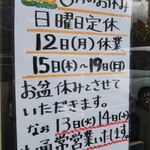 月のお休み
日曜日定休
12日(月)休業
15日(木)～19日(月)
お盆休みとさせて
いただきます。
なお13日(火)14日(水)
通常営業いたします。